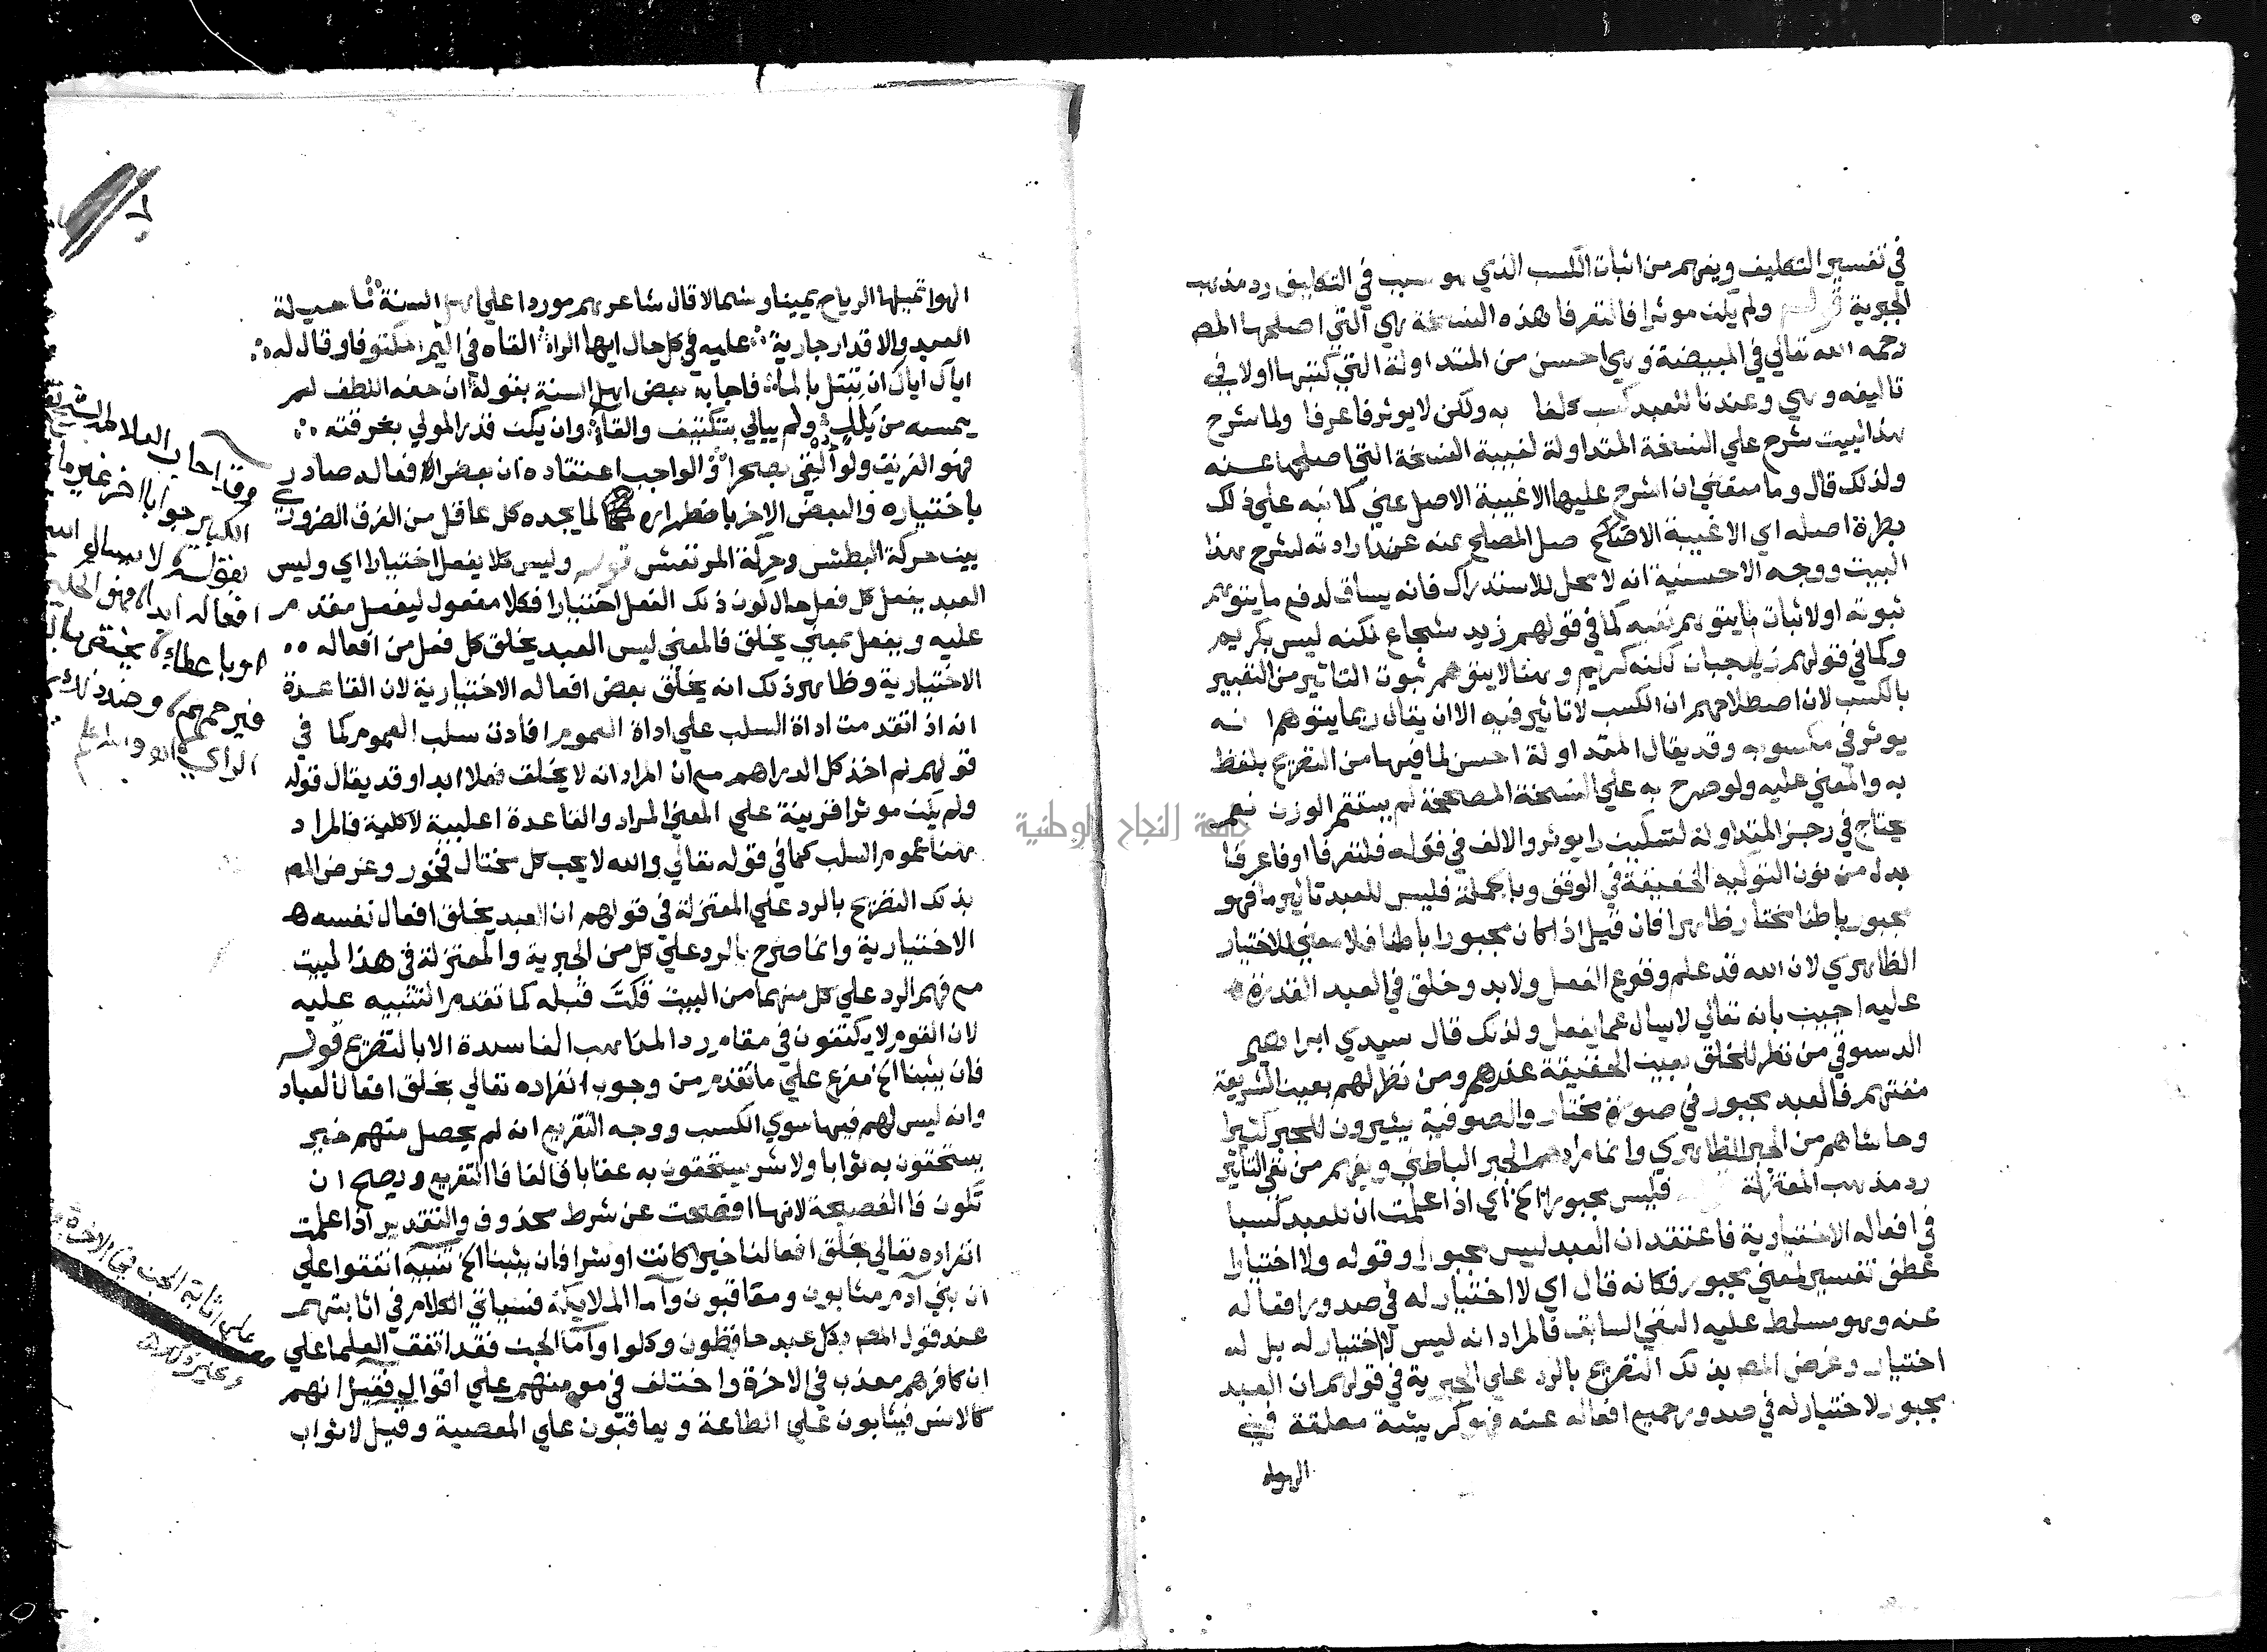 في تفسير التكليف ويفهم من اثبات الكسب الذي هو سبب في التكليف رد مذهب
الجبرية قولـه ولم يكن موثرا فالتعرفا هذه النسخة هي التي اصلحها المص
رحمه الله تعالي في المبيضة وهي احسن من المتداولة التي كتبها اولا في
تاليفه وهي وعندنا للعبد كسب كلفا به ولكن لا يوثر فاعرفا ولما شرح
هذا البيت شرح علي النسخة المتداولة لغيبة النسخة التي اصلحها عنه
ولذلك قال وما منعني ان اشرح عليها الا غيبة الاصل عني كما نبه علي ذلك
بطرة اصله اي الا غيبة الاصل المصلح عنه عند ارادته لشرح هذا
البيت ووجه الاحسنية انه لا محل للاستدراك فانه يساق لدفع ما يتوهم
ثبوته او لاثبات ما يتوهم نفيه كما في قولهم زيد شجاع لكنه ليس بكريم
وكما في قولهم زيد جبان لكنه كريم وهنا لا يتوهم ثبوت التاثير من التعبير
بالكسب لان اصطلاحهم ان الكسب لا تاثير فيه الا ان يقال ربما يتوهم انه
يوثر في مكسوبه وقد يقال المتداولة احسن لما فيها من التصريح بلفظ
به والمعني عليه ولو صرح به علي النسخة المصححة لم يستقم الوزن نعم
يحتاج في رجز المتداولة لتسكين را يوثر والالف في قوله فلتعرفا او فاعرفا
بدل من نون التوكيد الخفيفة في الوقف وبالجملة فليس للعبد تاثير ما فهو
مجبور باطنا مختار ظاهرا فان قيل اذا كان مجبورا باطنا فلا معني للاختيار
الظاهري لان الله قد علم وقوع الفعل ولا بد وخلق في العبد القدرة
عليه اجيب بانه تعالي لا يسال عما يفعل ولذلك قال سيدي ابراهيم
الدسوقي من نظر للخلق بعين الحقيقة عذرهم ومن نظر لهم بعين الشريعة
مقتهم فالعبد مجبور في صورة مختار والصوفية يشيرون للجبر كثيرا
وحاشاهم من الجبر الظاهري وانما مرادهم الجبر الباطني ويفهم من نفي التاثير
رد مذهب المعتزلة فليس مجبورا الخ اي اذا علمت ان للعبد كسبا
في افعاله الاختيارية فاعتقد ان العبد ليس مجبورا وقوله ولا اختيارا
عطف تفسير لمعني مجبور فكانه قال اي لا اختيار له في صدور افعاله
عنه وهو مسلط عليه النفي السابق فالمراد انه ليس لا اختيار له بل له
اختيار وغرض المص بذلك التصريح بالرد علي الجبرية في قولهم ان العبد
مجبور لا اختيار له في صدور جميع افعاله عنه فهو كريشة معلقة في
الهوا
الهوا تميلها الرياح يمينا وشمالا قال شاعرهم موردا علي اهل السنة ما حيلة
العبد والاقدار جارية عليه في كل حال ايها الراء القاه في اليم مكتوفا وقال له
اياك اياك ان تبتل بالماء فاجابه بعض اهل السنة بقوله ان حفه اللطف لم
يمسسه من بلل ولم يبالي بتكتيف والقاء وان يكن قدر المولي بغرقته
فهو الغريق ولو القي بصحراء والواجب اعتقاده ان بعض افعاله صادر
باختياره والبعض الاخر باضطراره لما يجده كل عاقل من الفرق الضروري
بين حركة البطش وحركة المرتعش قوله وليس كلا يفعل اختيارا اي وليس
العبد يفعل كل فعل حال كون ذلك الفعل اختيارا فكلا مفعول ليفعل مقدم
عليه ويفعل بمعني يخلق فالمعني ليس العبد يخلق كل فعل من افعاله
الاختيارية وظاهر ذلك انه يخلق بعض افعاله الاختيارية لان القاعدة
انه اذا تقدمت اداة السلب علي اداة العموم افادت سلب العموم كما في
قولهم لم اخذ كل الدراهم مع ان المراد انه لا يخلق فعلا ابدا وقد يقال قوله
ولم يكن موثرا قرينة علي المعني المراد والقاعدة اغلبية لا كلية فالمراد
هنا عموم السلب كما في قوله تعالي والله لا يحب كل مختال فخور وغرض المص
بذلك التصريح بالرد علي المعتزلة في قولهم ان العبد يخلق افعال نفسه
الاختيارية وانما صرح بالرد علي كل من الجبرية والمعتزلة في هذا البيت
مع فهم الرد علي كل منهما من البيت قبله كما تقدم التنبيه عليه
لان القوم لا يكتفون في مقام رد المذاهب الفاسدة الا بالتصريح قولـه
فان يثبنا الخ مفرع علي ما تقدم من وجوب انفراده تعالي بخلق افعال العباد
وانه ليس لهم فيها سوي الكسب ووجه التفريع انه لم يحصل منهم خير
يستحقون به ثوابا ولا شر يستحقون به عقابا فالفا فا التفريع ويصح ان
تكون فا الفصيحة لانها افصحت عن شرط محذوف والتقدير اذا علمت
انفراده تعالي بخلق افعالنا خيرا كانت او شرا فان يثبنا الخ تنبيه اتفقوا علي
ان بني آدم مثابون ومعاقبون وأما الملايكة فسياتي الكلام في اثابتهم
عند قول المص بكل عبد حافظون وكلوا وأما الجن فقد اتفق العلما علي
ان كافرهم معذب في الاخرة واختلف في مومنهم علي اقوال فقيل انهم
كالانس فيثابون علي الطاعة ويعاقبون علي المعصية وقيل لا ثواب
وقد اجاب العلامة الشيخ
الكبير جوابا اخر غير ما
بقوله لا يسال
افعاله ابدا فهو الحكيم
فيرحمهم وضد ذلك
جامعة النجاح الوطنية